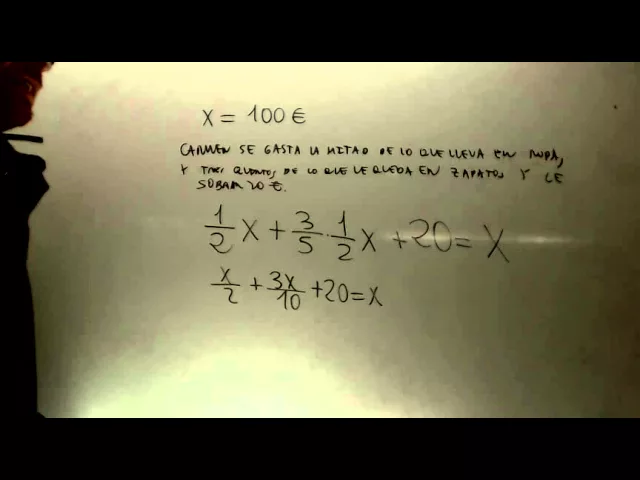 X = 100 €
CARMEN SE GASTA LA MITAD DE LO QUE LLEVA EN ROPA,
Y TRES QUINTOS DE LO QUE LE QUEDA EN ZAPATOS Y LE
SOBRAN 20 €.
1/2 X + 3/5 · 1/2 X + 20 = X
X/2 + 3X/10 + 20 = X